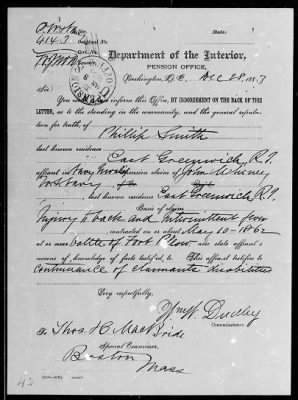 State:
414.3
Original No.
Department of the Interior,
PENSION OFFICE,
Washington, D.C., Dec 28, 1883
Sir:
You will please inform this Office, BY ENDORSEMENT ON THE BACK OF THIS
LETTER, as to the standing in the community, and the general reputation
for truth, of
Phillip Smith
last known residence
East Greenwich, R.I.
affiant in Navy Invalid pension claim of John
last known residence East Greenwich R.I.
Basis of claim:
Injury to back and Intermittent fever
contracted on or about May 10-1862
at or near battle of Fort
means of knowledge of facts testified to. This affiant testifies to
Continuance of claimants disabilities
Very respectfully,
Wm W. Dudley
Commissioner.
To Thos. H. MacBride
Special Examiner.
Boston
Mass
43